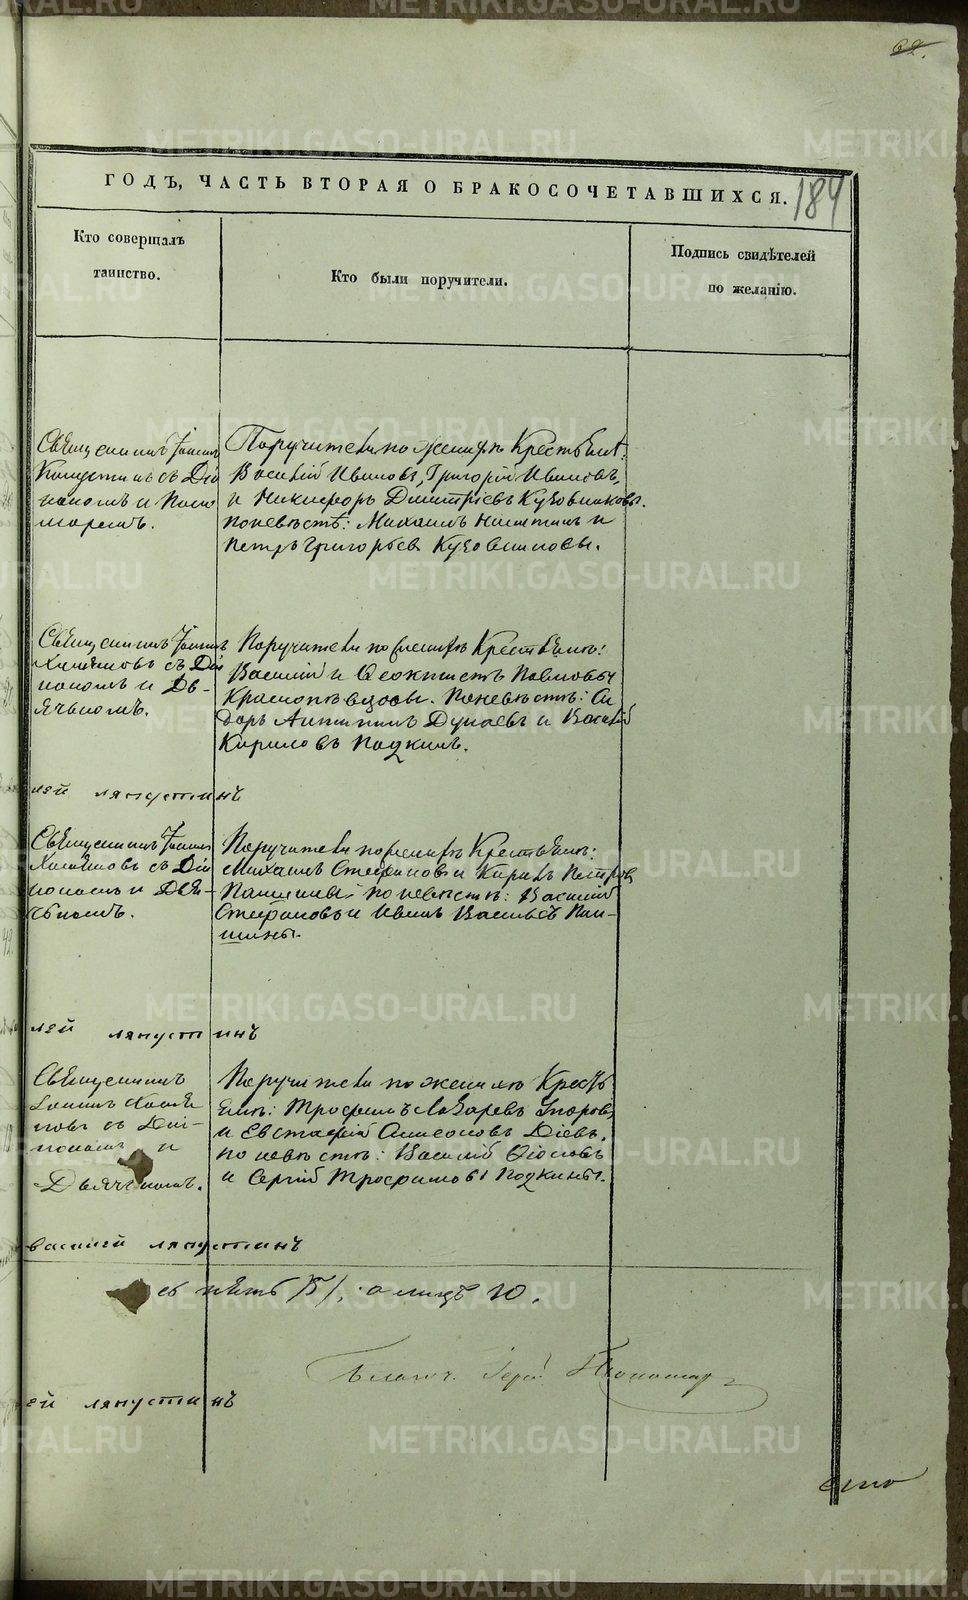 62.
ГОДЪ, ЧАСТЬ ВТОРАЯ О БРАКОСОЧЕТАВШИХСЯ.
184
Кто совершалъ
таинство.
Кто были поручители.
Подпись свидѣтелей
по желанію.
Священникъ Іоаннъ
съ Діа
кономъ и Поно
маремъ.
Поручители по женихѣ Крестьяне:
Василій Ивановъ, Григорій Ивановъ,
и Никифоръ Дмитріевъ Кузовниковы.
по невѣстѣ: Михаилъ Никитинъ и
Петръ Григорьевъ Кузовниковы.
Священникъ Іоаннъ
съ Діа
кономъ и Дь-
ячкомъ.
Поручители по женихѣ Крестьяне:
Василій и Ѳеоктистъ Павловы
Красноперовы. По невѣстѣ: Си
доръ Антипинъ Дунаевъ и Василій
Кириловъ Подкинъ.
лей ляпустинъ
Священникъ Іоаннъ
съ Діа
кономъ и Дья-
чкомъ.
Поручители по женихѣ Крестьяне:
Михаилъ Стефановъ и Кирилъ Петровъ
Паншины по невѣстѣ: Василій
Стефановъ и Иванъ Васильевъ Пан-
шины.
лей ляпустинъ
Священникъ
Іоаннъ
съ Діа-
кономъ и
Дьячкомъ.
Поручители по женихѣ Кресть
яне: Трофимъ Лазаревъ Егоровъ
и Евстафій Симеоновъ Діевъ.
по невѣстѣ: Василій
и Сергій Трофимовы Подкины.
василей ляпустинъ
пять /5/, а лицъ 10.
ей ляпустинъ
METRIKI.GASO-URAL.RU